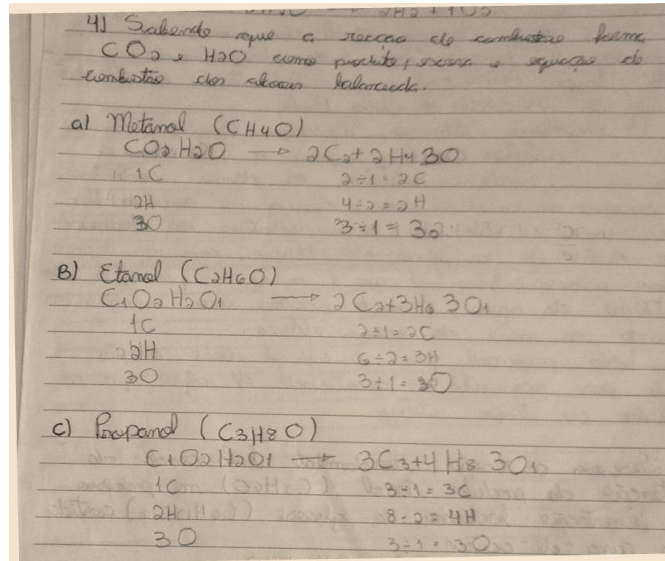 2H2 + 1O2
4) Sabendo que a reação de combustão forma
CO2 e H2O como produto, escreva a equação de
combustão dos alcoois balanceada.
a) Metanol (CH4O)
CO2H2O → 2C2+2H4 3O
1C 2÷1=2C
2H 4÷2=2H
3O 3÷1=3O
B) Etanol (C2H6O)
C1O2H2O1 → 2C2+3H6 3O1
1C 2÷1=2C
2H 6÷2=3H
3O 3÷1=3O
c) Propanol (C3H8O)
C1O2H2O1 → 3C3+4H8 3O1
1C 3÷1=3C
2H 8÷2=4H
3O 3÷1=3O